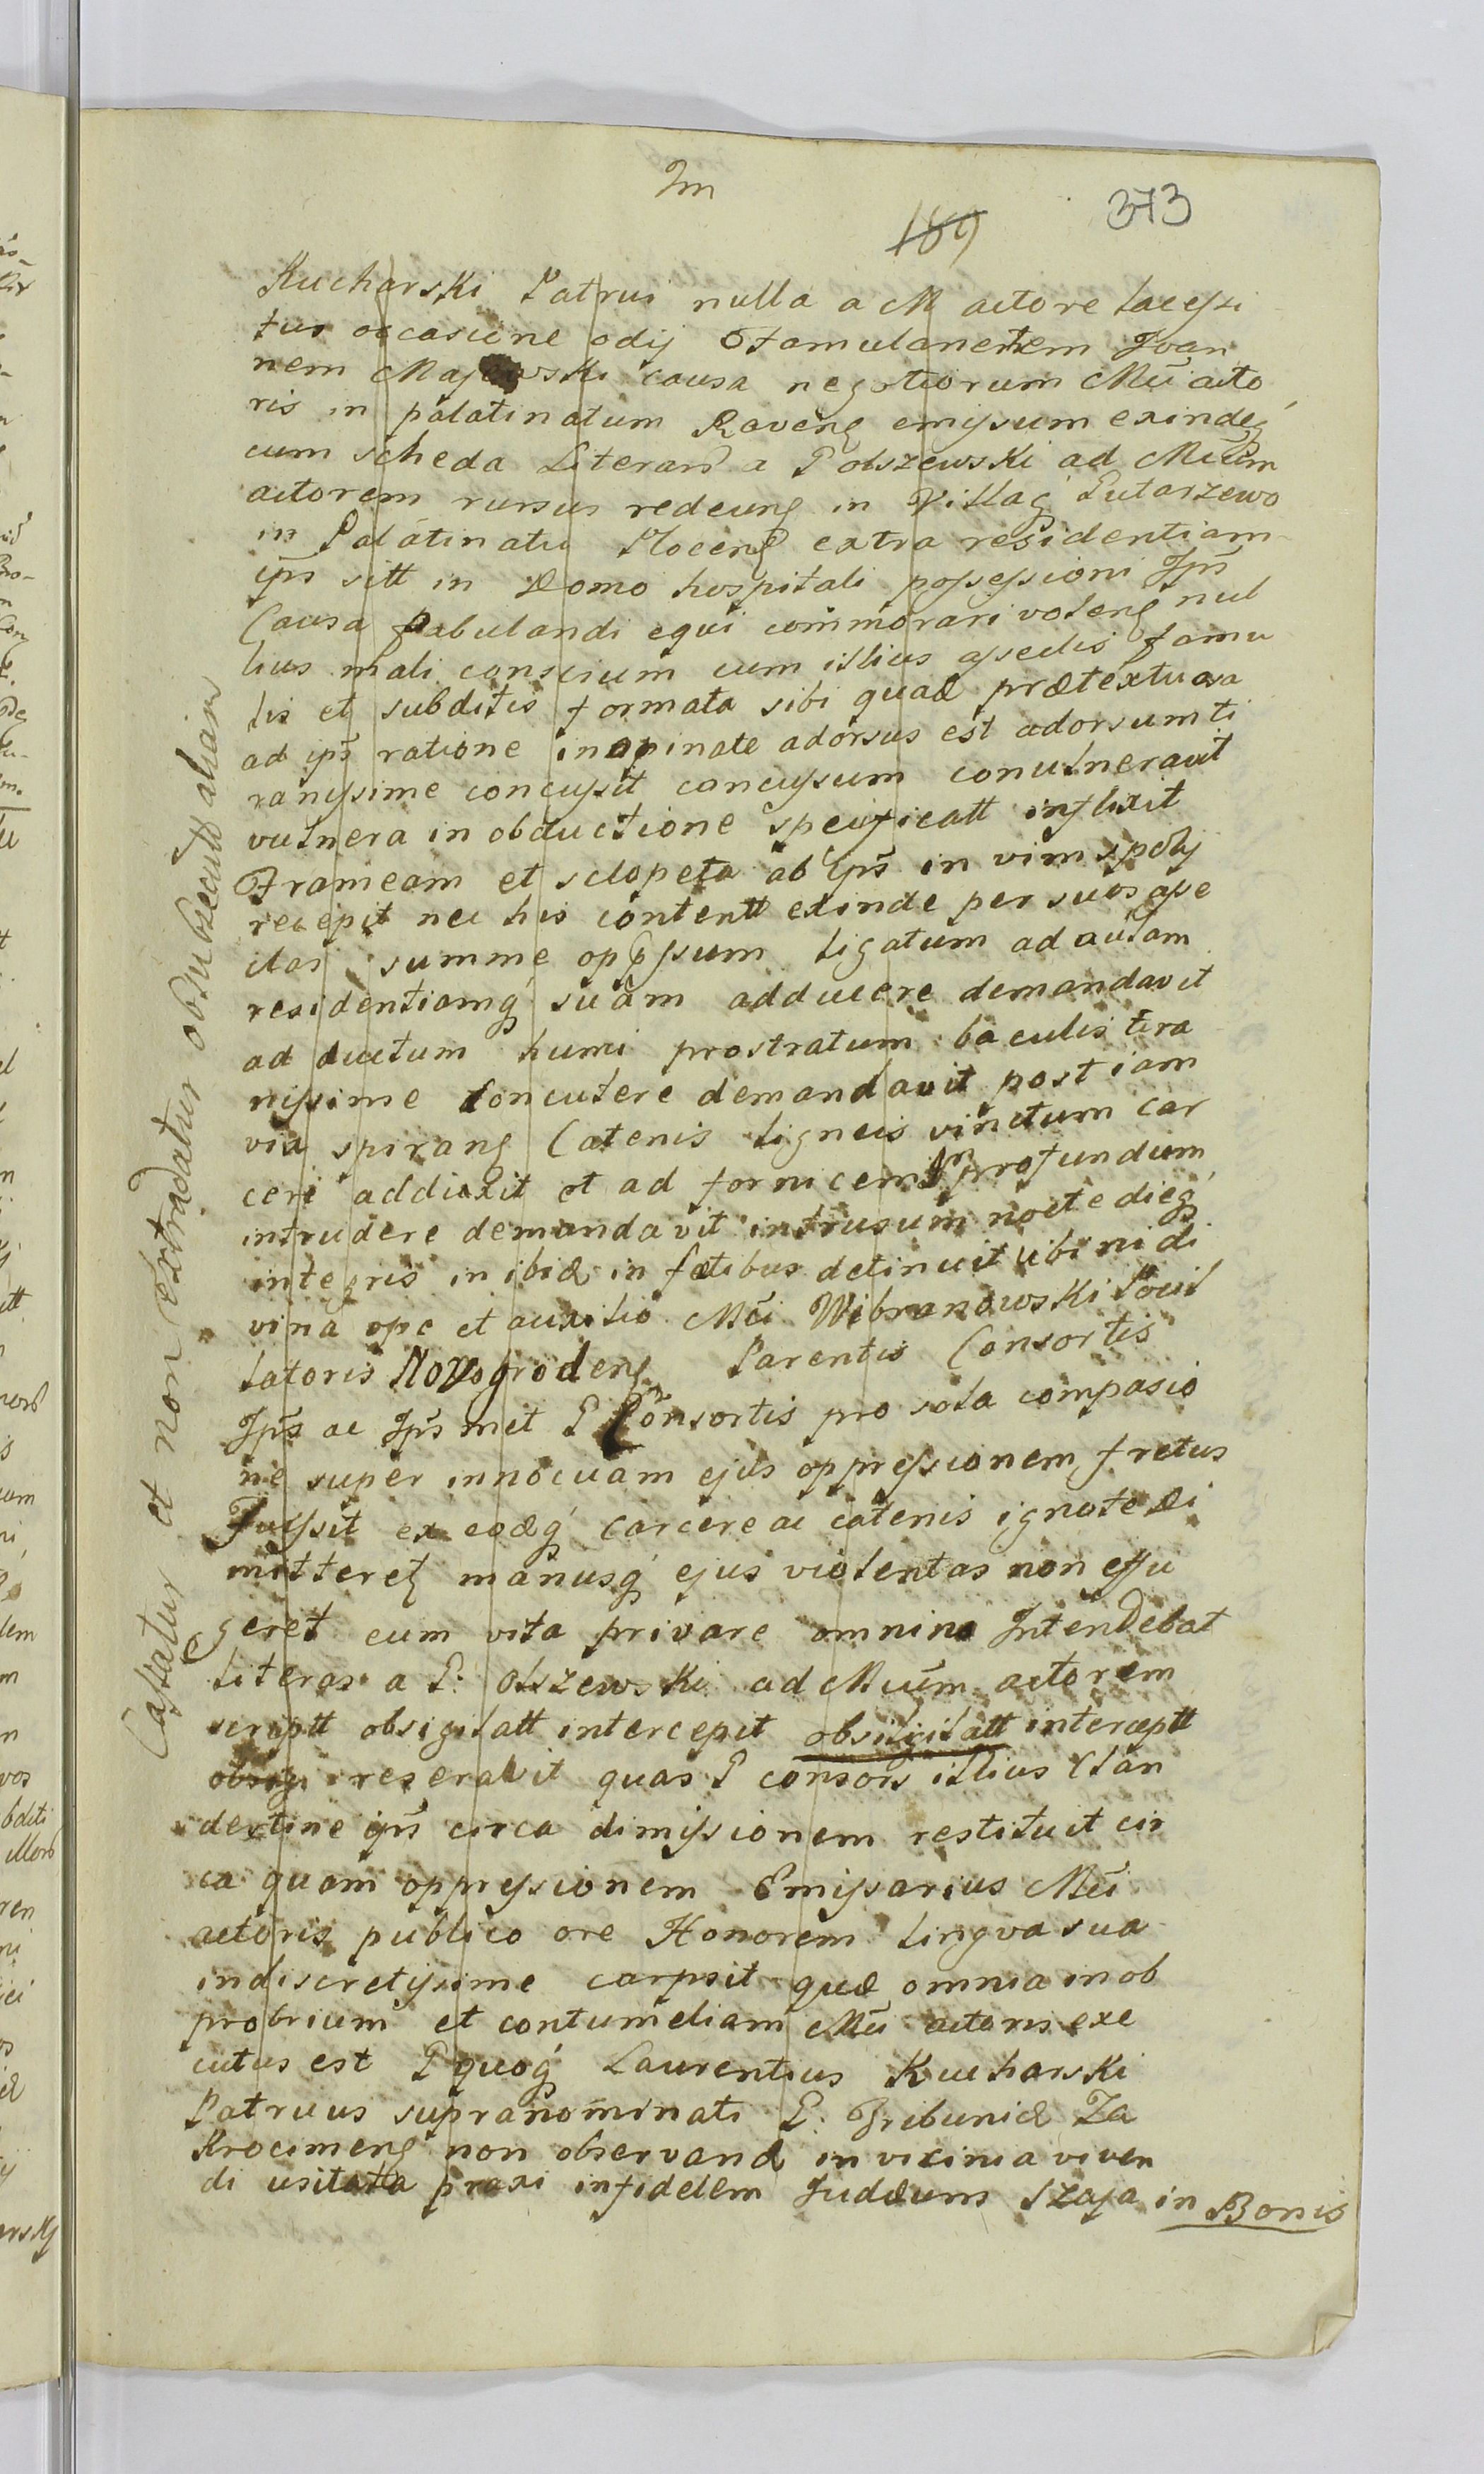 Im
189
373
Kucharski Patrui nulla a M actore lacessi
tus occasione odij Famulanentem Joan
nem Majewski causa negotiorum Mci acto
ris in palatinatum Ravens emissum exindeq
cum scheda Literarum a P olszewski ad Mcum
actorem rursus redeuns in Villaq Putarzewo
in Palatinatu Plocens extra residentiam
ips sitt in Domo hospitali possessioni Ips
Causa pabulandi equi commorari volens nul
lius mali conscium cum illius asseclis famu
lis et subditis formata sibi quad prætextuosa
ad ips ratione inopinate adorsus est adorsum ti
ranissime concussit concussum convulneravit
vulnera in obductione specificatt inflixit
Frameam et sclopeta ab ips in vim spolij
recepit nec his contentt exinde per suos asse
clas summe oppssum ligatum ad aulam
residentiamq suam adducere demandavit
adductum humi prostratum baculis tira
nissime concutere demandavit post iam
vix spirans Catenis ligneis vinctum car
ceri addixit et ad fornicem profundum
intrudere demandavit intrusum nocte dieq
integris in ibid in fætibus detinuit ubi ni di
vina ope et auxilio Mci Wibranowski Pocil
latoris Novogrodens Parentis Consortis
Ips ac Ips met P Consortis pro sola compasio
ne super innocuam ejus oppressionem fretus
Fuissit ex eodq carcere ac catenis ignote di
mitteret manusq ejus violentas non effu
geret eum vita privare omnino Intendebat
literas a P. Olszewski ad Mcum actorem
scriptt obsigilatt intercepit obsigilatt interceptt
obsigi reseravit quas P consors illius Clan
destine ips circa dimissionem restituit cir
ca quam oppressionem Emissarius Mci
actoris publico ore Honorem lingva sua
indiscretissime carpsit quæ omnia in ob
probrium et contumeliam Mci actoris exe
cutus est P quoq Laurentius Kucharski
Patruus supranominati P. Tribunid Za
Krocimens non observand in vicinia viven
di usitata praxi infidelem Judæum Szaja in Bonis
Cassatur et non extradatur obsubsecutt aliam